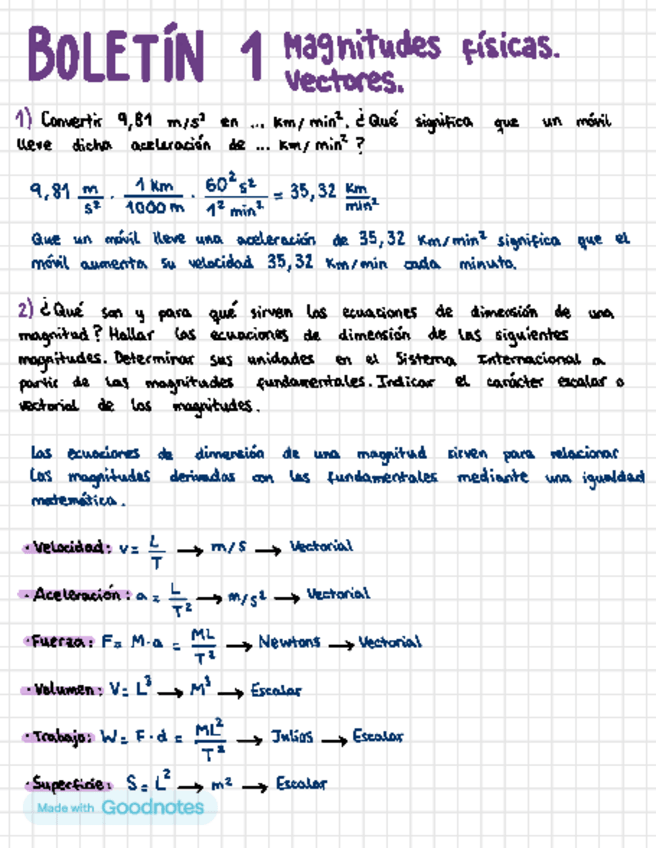 BOLETÍN 1 Magnitudes físicas.
Vectores.
1) Convertir 9,81 m/s² en ... km/min². ¿Qué significa que un móvil
lleve dicha aceleración de ... km/min²?
9,81 m/s² · 1 km/1000 m · 60² s²/1² min² = 35,32 km/min²
Que un móvil lleve una aceleración de 35,32 km/min² significa que el
móvil aumenta su velocidad 35,32 km/min cada minuto.
2) ¿Qué son y para qué sirven las ecuaciones de dimensión de una
magnitud? Hallar las ecuaciones de dimensión de las siguientes
magnitudes. Determinar sus unidades en el Sistema Internacional a
partir de las magnitudes fundamentales. Indicar el carácter escalar o
vectorial de las magnitudes.
Las ecuaciones de dimensión de una magnitud sirven para relacionar
las magnitudes derivadas con las fundamentales mediante una igualdad
matemática.
· Velocidad: v = L/T → m/s → Vectorial
· Aceleración: a = L/T² → m/s² → Vectorial
· Fuerza: F = M·a = ML/T² → Newtons → Vectorial
· Volumen: V = L³ → M³ → Escalar
· Trabajo: W = F·d = ML²/T² → Julios → Escalar
· Superficie: S = L² → m² → Escalar
Made with Goodnotes